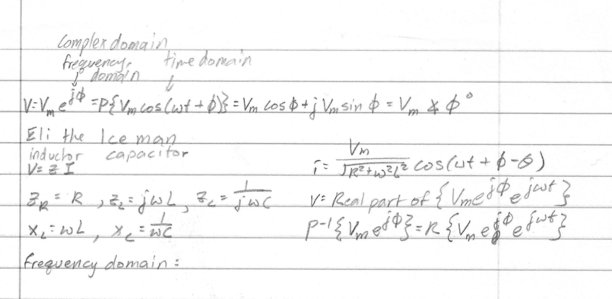 complex domain
frequency, time domain
↓ domain ↓
V=V_m e^{jϕ}=P{V_m cos(ωt+ϕ)}=V_m cosϕ+j V_m sin ϕ = V_m ∡ ϕ°
Eli the Ice man
inductor capacitor
V=ZI
i= V_m/√(R²+ω²L²) cos(ωt+ϕ-θ)
Z_R=R, Z_L=jωL, Z_C=1/(jωC)
V=Real part of {V_m e^{jϕ} e^{jωt}}
X_L=ωL, X_C=1/(ωC)
P^{-1}{V_m e^{jϕ}}=R{V_m e^{jϕ} e^{jωt}}
frequency domain: